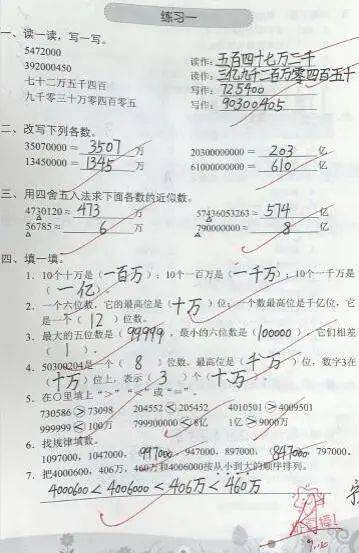 练习一
一、读一读，写一写。
5472000 读作：五百四十七万二千
392000450 读作：三亿九千二百万零四百五十
七十二万五千四百 写作：725400
九千零三十万零四百零五 写作：90300405
二、改写下列各数。
35070000=3507万 20300000000=203亿
13450000=1345万 61000000000=610亿
三、用四舍五入法求下面各数的近似数。
4730120≈473万 57436053263≈574亿
56785≈6万 790000000≈8亿
四、填一填。
1. 10个十万是（一百万）；10个一百万是（一千万）；10个一千万是
（一亿）。
2. 一个六位数，它的最高位是（十万）位；一个数最高位是千亿位，它
是一个（12）位数。
3. 最大的五位数是（99999），最小的六位数是（100000），它们相差
（1）。
4. 50300204是一个（8）位数，最高位是（千万）位，数字3在
（十万）位上，表示（3）个（十万）。
5. 在○里填上“>”“<”或“=”。
730586>73098 204552<205452 4010501>4009501
999999<100万 799900000<8亿 1亿>9000万
6. 找规律填数。
1097000，1047000，997000，947000，897000，847000，797000。
7. 把4000600，406万，460万和4006000按从小到大的顺序排列。
4000600<4006000<406万<460万